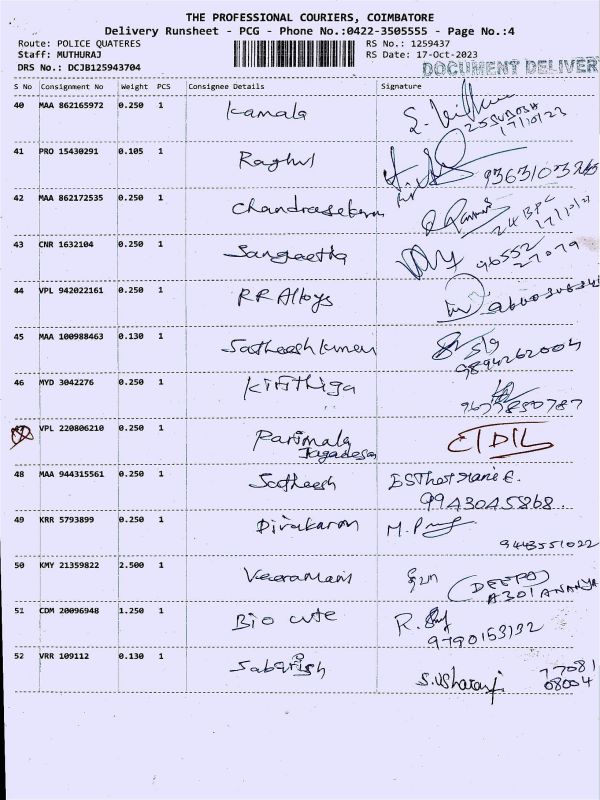 THE PROFESSIONAL COURIERS, COIMBATORE
Delivery Runsheet - PCG - Phone No.:0422-3505555 - Page No.:4
Route: POLICE QUATERES RS No.: 1259437
Staff: MUTHURAJ RS Date: 17-Oct-2023
DRS No.: DCJB125943704 DOCUMENT DELIVER
S No Consignment No Weight PCS Consignee Details Signature
40 MAA 862165972 0.250 1 Kamala
17/10/23
41 PRO 15430291 0.105 1 Raghul
42 MAA 862172535 0.250 1 Chandrasekaran
43 CNR 1632104 0.250 1 Sangeetha 96552
27079
44 VPL 942022161 0.250 1 RR Alloys
45 MAA 100988463 0.130 1 Satheesh kumar
9894262004
46 MYD 3042276 0.250 1 Kirithiga
9677850787
VPL 220806210 0.250 1 Parimala
Jagadesan
48 MAA 944315561 0.250 1 Satheesh
9943045868
49 KRR 5793899 0.250 1 Divakaran
9443551022
50 KMY 21359822 2.500 1 Veeramani (DEEPA)
A301 ANANYA
51 CDM 20096948 1.250 1 Bio cute
9790153132
52 VRR 109112 0.130 1 Sabarish S.Usharani 77081
08004